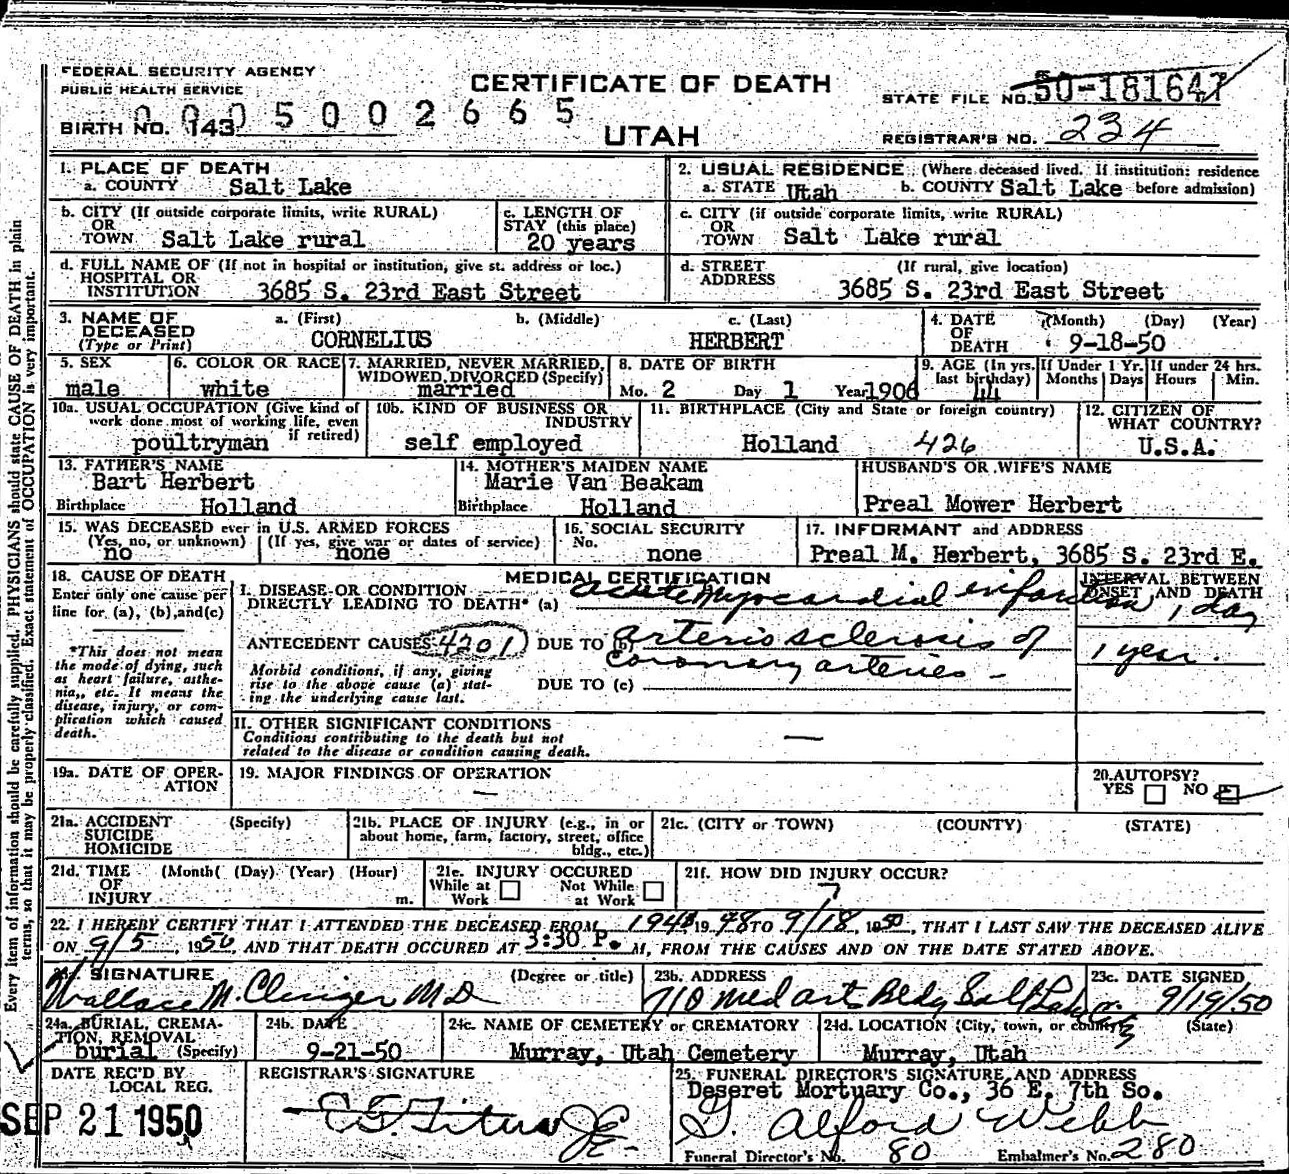 FEDERAL SECURITY AGENCY
PUBLIC HEALTH SERVICE
CERTIFICATE OF DEATH
UTAH
STATE FILE NO. 50-181647
0005002665
BIRTH NO. 143
REGISTRAR'S NO. 234
1. PLACE OF DEATH
a. COUNTY Salt Lake
2. USUAL RESIDENCE (Where deceased lived. If institution: residence before admission)
a. STATE Utah b. COUNTY Salt Lake
b. CITY (If outside corporate limits, write RURAL)
OR
TOWN Salt Lake rural
c. LENGTH OF
STAY (this place)
20 years
c. CITY (if outside corporate limits, write RURAL)
OR
TOWN Salt Lake rural
d. FULL NAME OF (If not in hospital or institution, give st. address or loc.)
HOSPITAL OR
INSTITUTION 3685 S. 23rd East Street
d. STREET (If rural, give location)
ADDRESS 3685 S. 23rd East Street
3. NAME OF
DECEASED
(Type or Print)
a. (First) CORNELIUS
b. (Middle)
c. (Last) HERBERT
4. DATE (Month) (Day) (Year)
OF
DEATH 9-18-50
5. SEX
male
6. COLOR OR RACE
white
7. MARRIED, NEVER MARRIED,
WIDOWED, DIVORCED (Specify)
married
8. DATE OF BIRTH
Mo. 2 Day 1 Year 1906
9. AGE (In yrs. last birthday)
44
If Under 1 Yr.
Months Days
If under 24 hrs.
Hours Min.
10a. USUAL OCCUPATION (Give kind of
work done most of working life, even
if retired)
poultryman
10b. KIND OF BUSINESS OR
INDUSTRY
self employed
11. BIRTHPLACE (City and State or foreign country)
Holland 426
12. CITIZEN OF
WHAT COUNTRY?
U.S.A.
13. FATHER'S NAME
Bart Herbert
Birthplace Holland
14. MOTHER'S MAIDEN NAME
Marie Van Beakam
Birthplace Holland
HUSBAND'S OR WIFE'S NAME
Preal Mower Herbert
15. WAS DECEASED ever in U.S. ARMED FORCES
(Yes, no, or unknown) (If yes, give war or dates of service)
no none
16. SOCIAL SECURITY
No. none
17. INFORMANT and ADDRESS
Preal M. Herbert, 3685 S. 23rd E.
18. CAUSE OF DEATH
Enter only one cause per
line for (a), (b), and (c)
*This does not mean
the mode of dying, such
as heart failure, asthe-
nia, etc. It means the
disease, injury, or com-
plication which caused
death.
MEDICAL CERTIFICATION
I. DISEASE OR CONDITION
DIRECTLY LEADING TO DEATH* (a) acute myocardial infarction
INTERVAL BETWEEN
ONSET AND DEATH
1 day
ANTECEDENT CAUSES 4201 DUE TO (b) arteriosclerosis of
coronary arteries -
1 year.
Morbid conditions, if any, giving
rise to the above cause (a) stat-
ing the underlying cause last.
DUE TO (c)
II. OTHER SIGNIFICANT CONDITIONS
Conditions contributing to the death but not
related to the disease or condition causing death.
—
19a. DATE OF OPER-
ATION
19. MAJOR FINDINGS OF OPERATION
—
20. AUTOPSY?
YES NO
21a. ACCIDENT (Specify)
SUICIDE
HOMICIDE
21b. PLACE OF INJURY (e.g., in or
about home, farm, factory, street, office
bldg., etc.)
21c. (CITY or TOWN) (COUNTY) (STATE)
21d. TIME (Month( (Day) (Year) (Hour)
OF
INJURY m.
21e. INJURY OCCURED
While at Work Not While at Work
21f. HOW DID INJURY OCCUR?
22. I HEREBY CERTIFY THAT I ATTENDED THE DECEASED FROM 1948 1948 TO 9/18, 1950, THAT I LAST SAW THE DECEASED ALIVE
ON 9/5, 1950, AND THAT DEATH OCCURED AT 3:30 P. M, FROM THE CAUSES AND ON THE DATE STATED ABOVE.
SIGNATURE (Degree or title)
Wallace M. Clinger MD
23b. ADDRESS
710 Med Art Bldg Salt Lake City
23c. DATE SIGNED
9/19/50
24a. BURIAL, CREMA-
TION, REMOVAL
burial (Specify)
24b. DATE
9-21-50
24c. NAME OF CEMETERY or CREMATORY
Murray, Utah Cemetery
24d. LOCATION (City, town, or county) (State)
Murray, Utah
DATE REC'D BY
LOCAL REG.
SEP 21 1950
REGISTRAR'S SIGNATURE
25. FUNERAL DIRECTOR'S SIGNATURE AND ADDRESS
Deseret Mortuary Co., 36 E. 7th So.
Alford Webb
Funeral Director's No. 80 Embalmer's No. 280
Every item of information should be carefully supplied. PHYSICIANS should state CAUSE OF DEATH in plain
terms, so that it may be properly classified. Exact statement of OCCUPATION is very important.